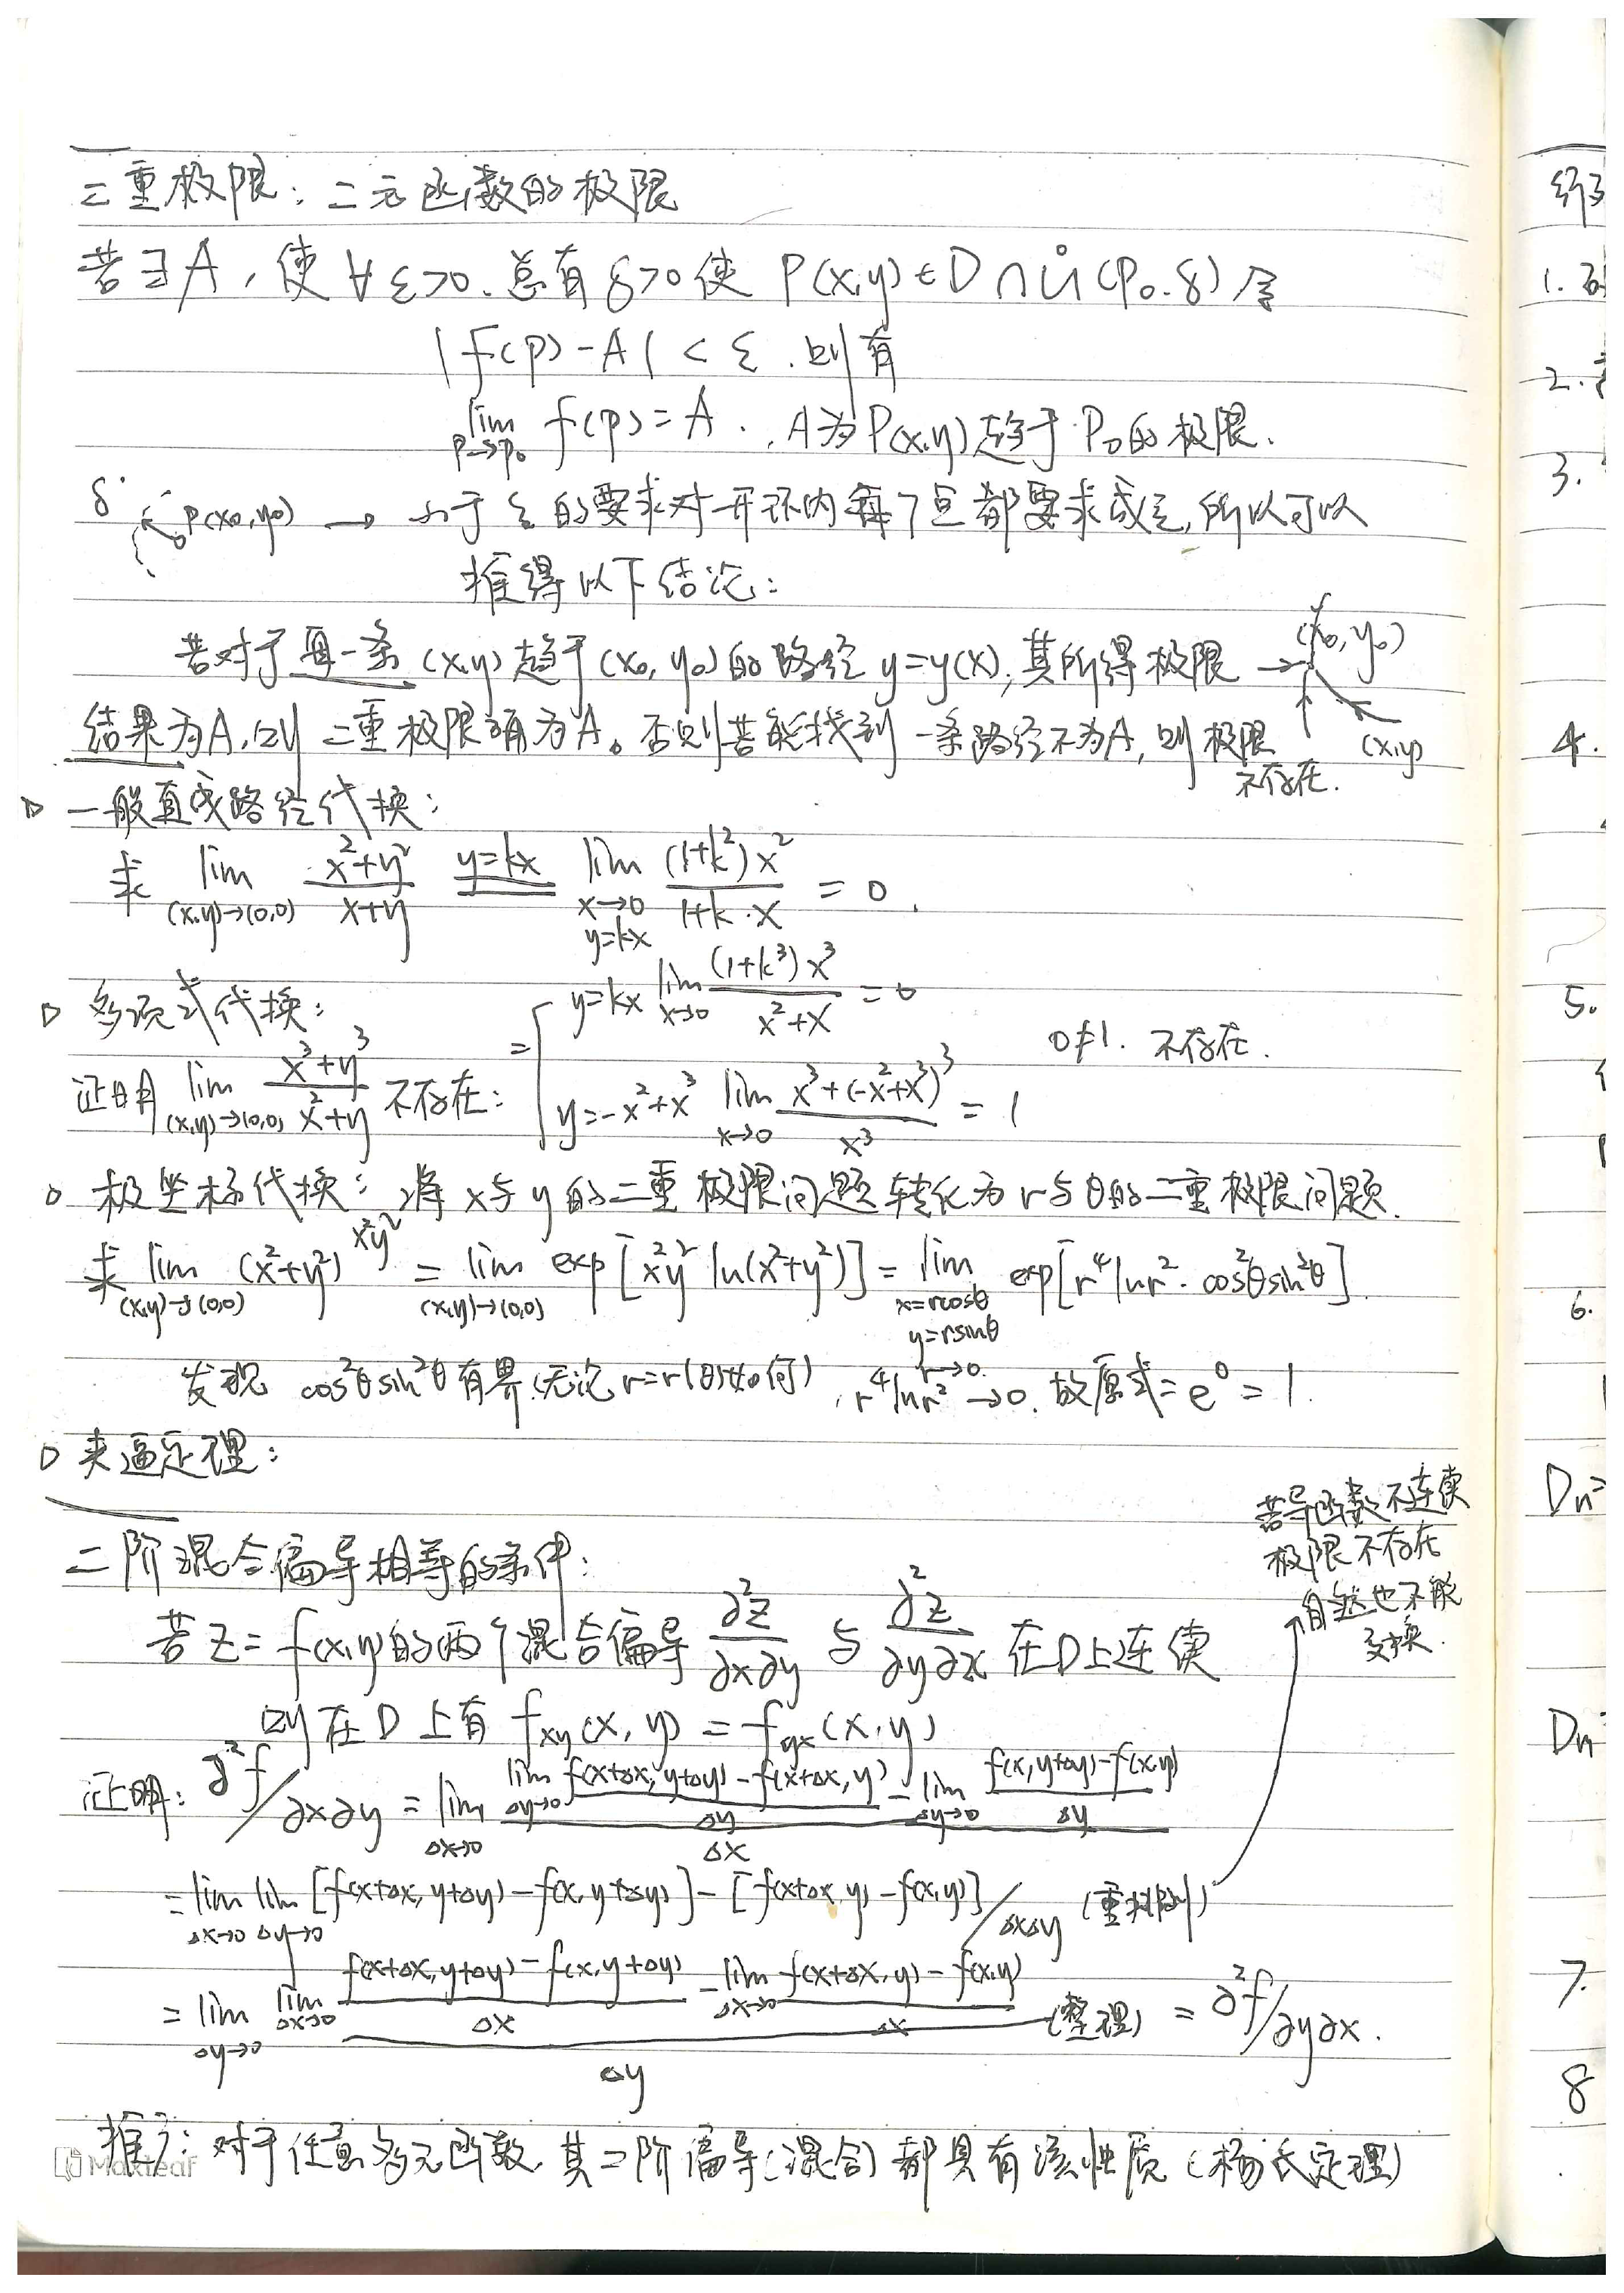 二重极限：二元函数的极限
若∃A，使∀ε>0，总有δ>0使 P(x,y)∈D∩Ů(P₀,δ)
|f(p)-A|<ε，则有
lim p→p₀ f(p)=A. A为P(x,y)趋于P₀的极限.
δ P(x₀,y₀) → 小于ε的要求对开环内每个点都要求成立,所以可以
推得以下结论：
若对于每一条(x,y)趋于(x₀,y₀)的路径y=y(x),其所得极限 → (x₀,y₀)
结果为A,则二重极限确为A。否则若能找到一条路径不为A,则极限不存在. (x,y)
▷ 一般直线路径代换：
求 lim (x,y)→(0,0) (x²+y²)/(x+y) y=kx lim x→0 y=kx (1+k²)x²/1+k·x = 0.
▷ 多项式代换： = { y=kx lim x→0 (1+k³)x³/(x²+x) = 0
证明 lim (x,y)→(0,0) (x³+y³)/(x²+y) 不存在： y=-x²+x³ lim x→0 (x³+(-x²+x³)³)/x³ = 1 0≠1. 不存在.
▷ 极坐标代换：将x与y的二重极限问题转化为r与θ的二重极限问题.
求 lim (x,y)→(0,0) (x²+y²)^(x²y²) = lim (x,y)→(0,0) exp[x²y² ln(x²+y²)] = lim x=rcosθ y=rsinθ r→0 exp[r⁴lnr²·cos²θsin²θ].
发现 cos²θsin²θ有界(无论r=r(θ)如何), r⁴lnr²→0. 故原式=e⁰=1.
▷ 夹逼定理：
二阶混合偏导相等的条件：
若导函数不连续
极限不存在
自然也不能
交换.
若z=f(x,y)的两个混合偏导 ∂²z/∂x∂y 与 ∂²z/∂y∂x 在D上连续
则在D上有 f_xy(x,y)=f_yx(x,y)
证明：∂²f/∂x∂y = lim Δx→0 [lim Δy→0 (f(x+Δx,y+Δy)-f(x+Δx,y))/Δy - lim Δy→0 (f(x,y+Δy)-f(x,y))/Δy]/Δx
= lim Δx→0 lim Δy→0 [f(x+Δx,y+Δy)-f(x,y+Δy)]-[f(x+Δx,y)-f(x,y)]/ΔxΔy (重排列)
= lim Δy→0 [lim Δx→0 (f(x+Δx,y+Δy)-f(x,y+Δy))/Δx - lim Δx→0 (f(x+Δx,y)-f(x,y))/Δx]/Δy (整理) = ∂²f/∂y∂x.
推广：对于任意多元函数,其二阶偏导(混合)都具有该性质(杨氏定理)
Maxleaf
1.
2.
3.
4.
5.
6.
Dn=
Dn
7.
8